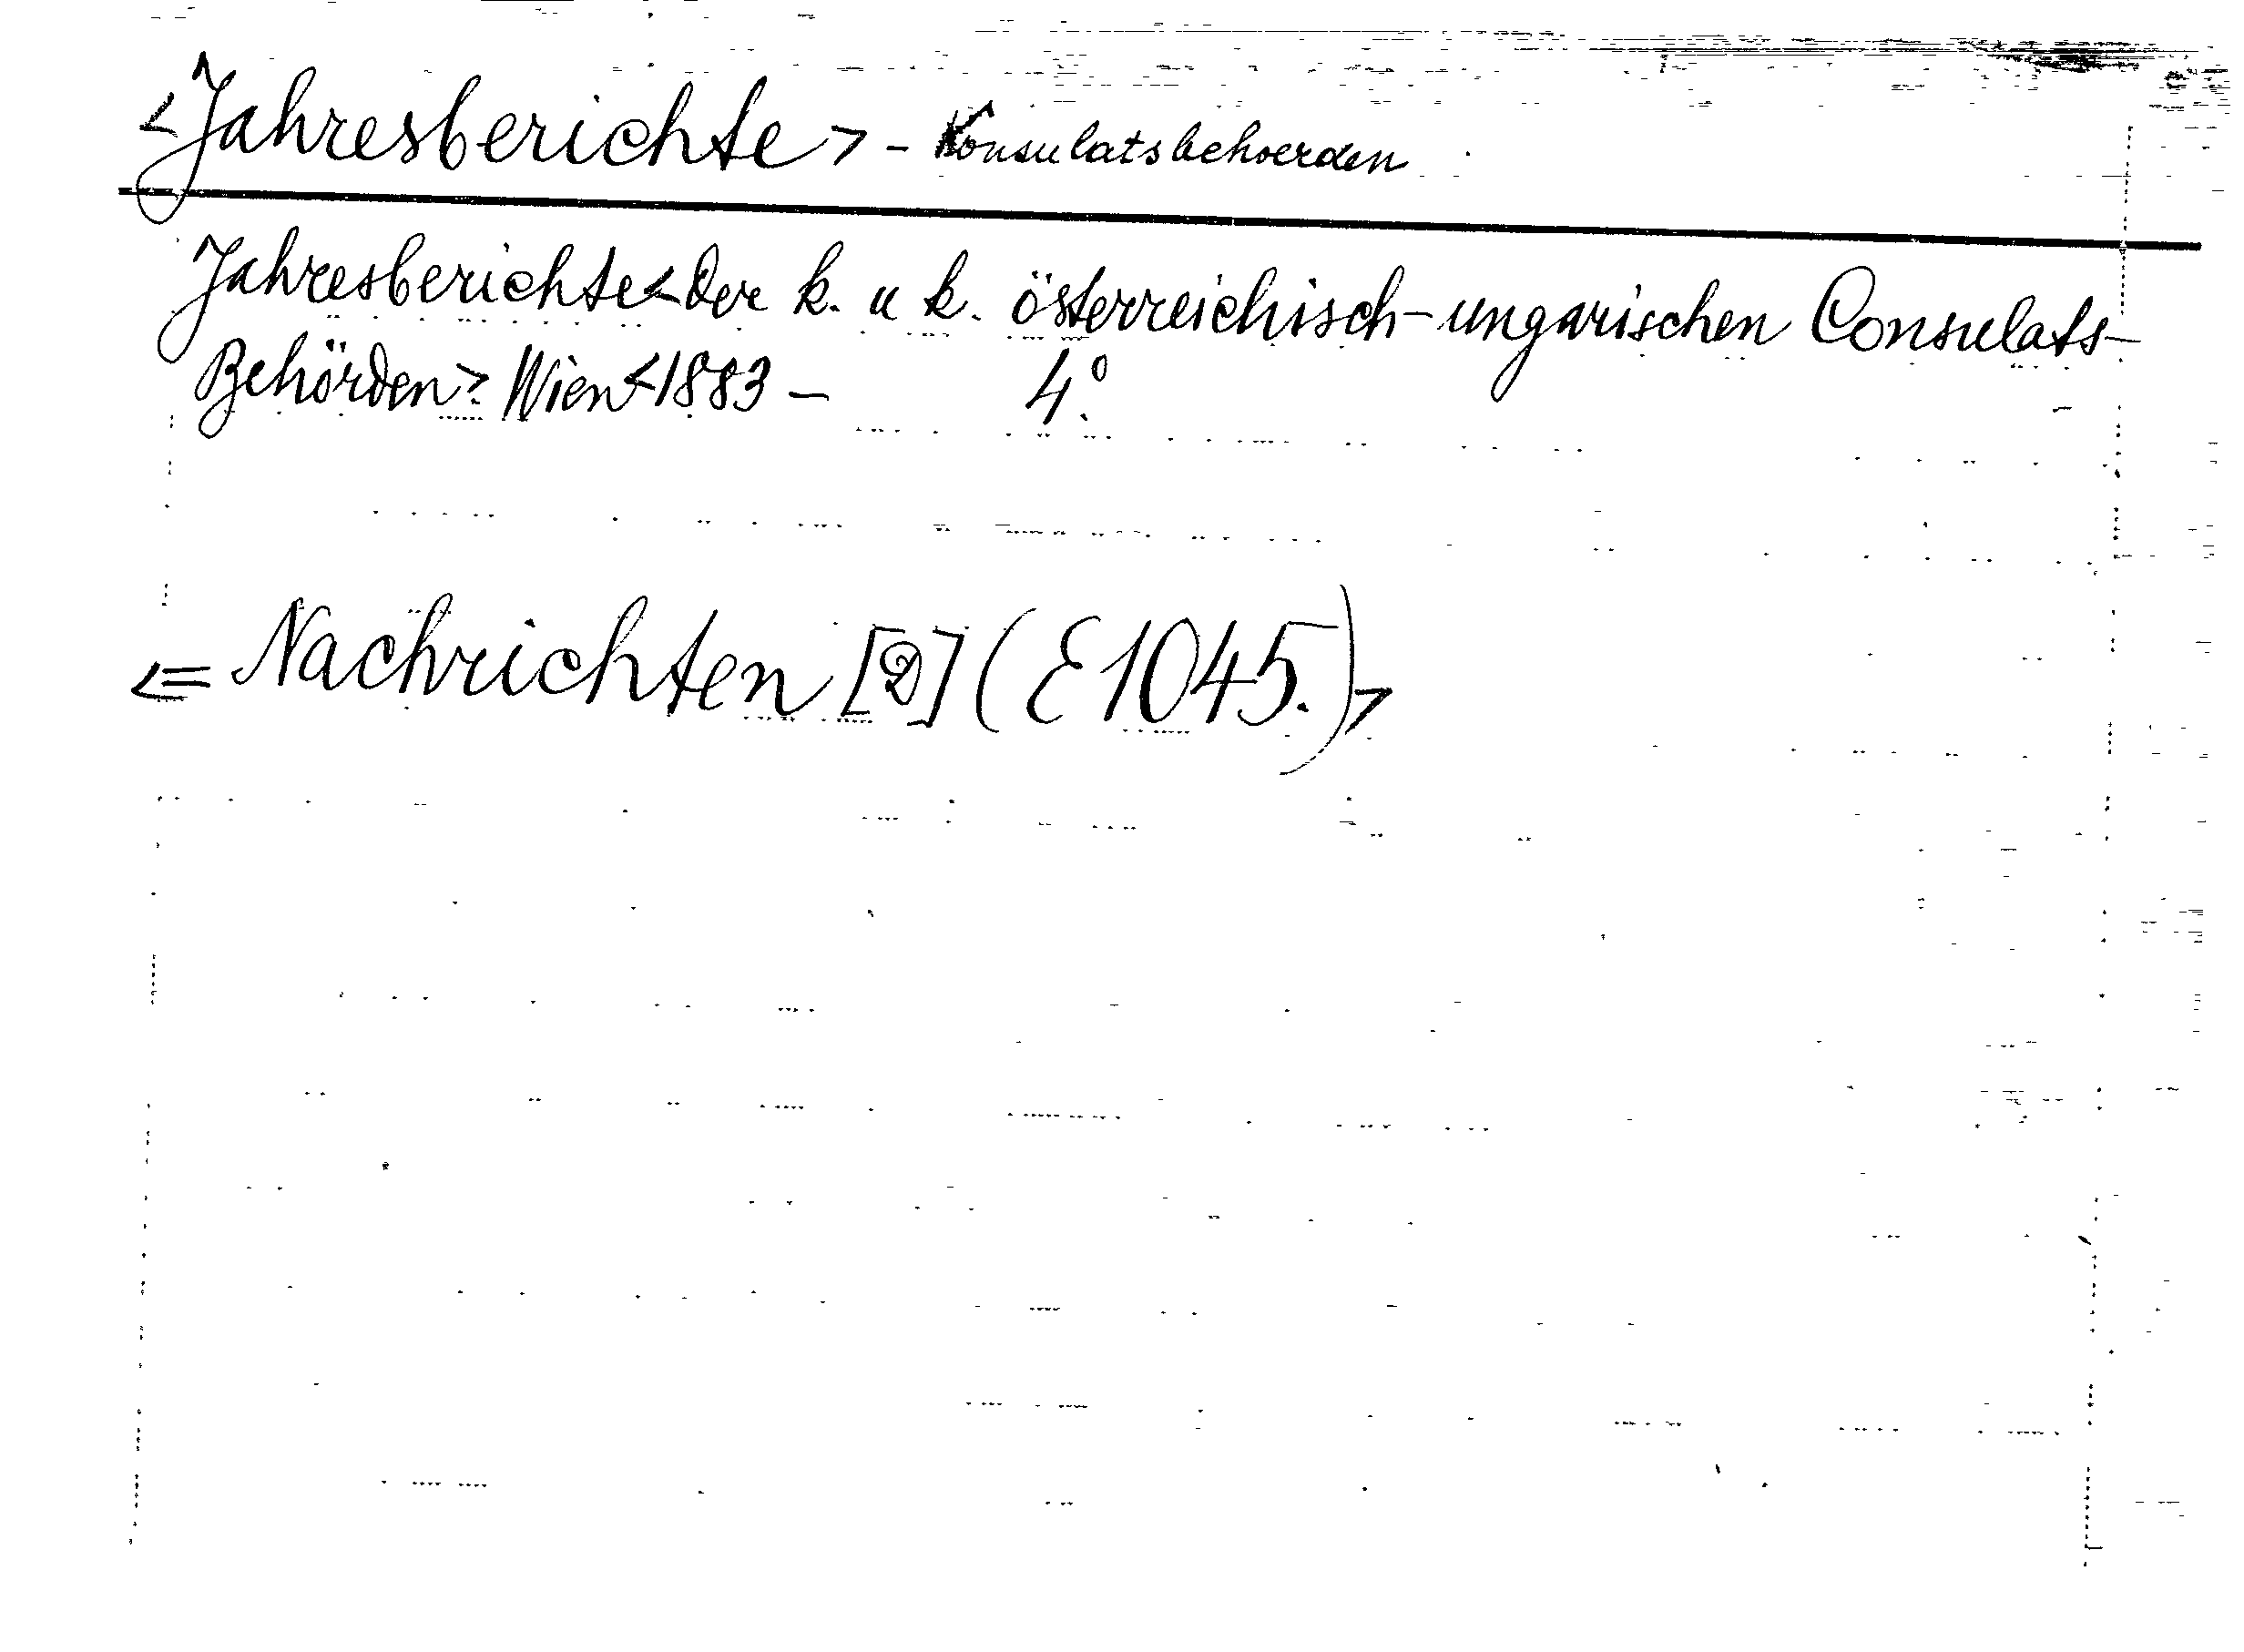 <Jahresberichte> - Konsulatsbehoerden
Jahresberichte<der k. u k. österreichisch-ungarischen Consulats-
Behörden>. Wien<1883 – 4°.
<= Nachrichten [2] (E1045.)>